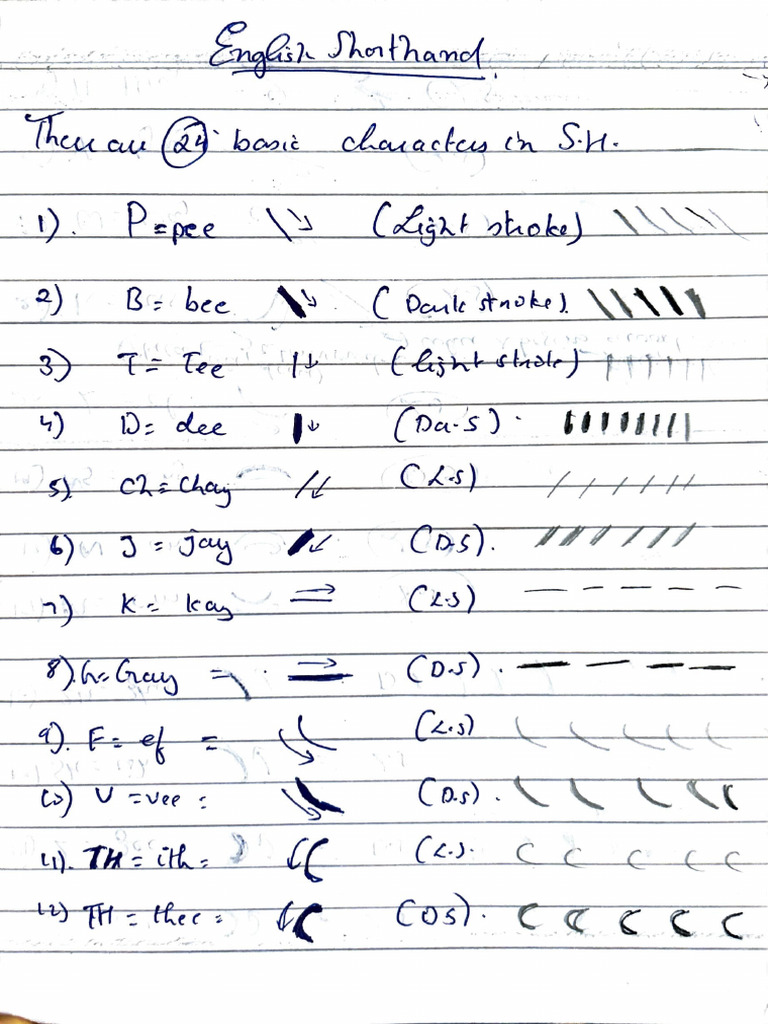 English Shorthand
There are 24 basic characters in S.H.
1). P = pee (Light stroke)
2) B = bee (Dark stroke).
3) T = Tee (light stroke)
4) D = dee (Da.S).
5) Ch = Chay (L.S)
6) J = Jay (D.S).
7) K = kay (L.S)
8) G = Gay = (D.S).
9). F = ef = (L.S)
10) V = vee = (D.S).
11). TH = ith = (L.S.
12) TH = thee = (DS).